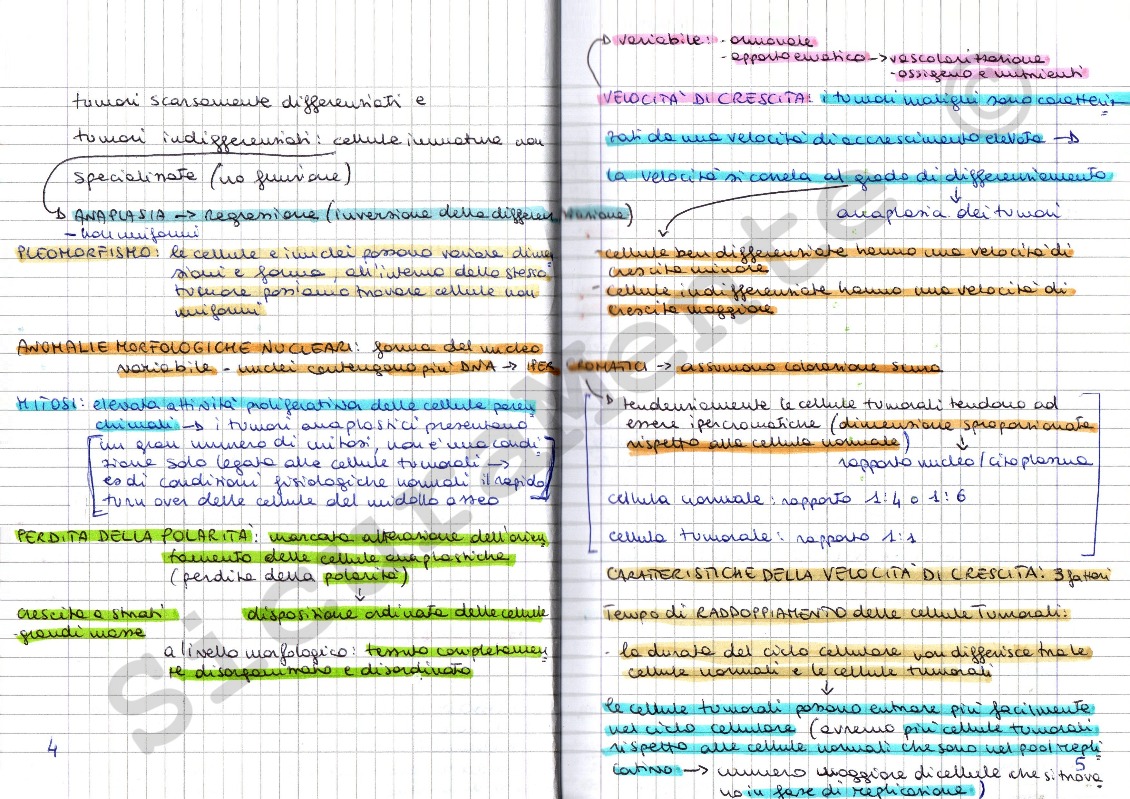 tumori scarsamente differenziati e
tumori indifferenziati: cellule immature non
specializzate (no funzione)
ANAPLASIA → Regressione (inversione della differenziazione)
- non uniformi
PLEOMORFISMO: le cellule e i nuclei possono variare dimen
sioni e forma, all'interno dello stesso
tumore possiamo trovare cellule non
uniformi
ANOMALIE MORFOLOGICHE NUCLEARI: forma del nucleo
variabile - nuclei contengono più DNA → IPERCROMATICI → assumono colorazione scura
MITOSI: elevata attività proliferativa delle cellule paren
chimali → i tumori anaplastici presentano
un gran numero di mitosi, non è una condi
zione solo legata alle cellule tumorali →
es di condizioni fisiologiche normali il rapido
turn over delle cellule del midollo osseo
PERDITA DELLA POLARITÀ: marcata alterazione dell'orien
tamento delle cellule anaplastiche
(perdita della polarità)
↓
crescita a strati disposizione ordinata delle cellule
- grandi masse
a livello morfologico: tessuto completamen
te disorganizzato e disordinato
4
variabile: - ormonale
- apporto ematico → vascolarizzazione
- ossigeno e nutrienti
VELOCITÀ DI CRESCITA: i tumori maligni sono caratteriz
zati da una velocità di accrescimento elevata →
la velocità si correla al grado di differenziamento
↓
anaplasia dei tumori
- cellule ben differenziate hanno una velocità di
crescita minore
- cellule indifferenziate hanno una velocità di
crescita maggiore
tendenziamente le cellule tumorali tendono ad
essere ipercromatiche (dimensione sproporzionata
rispetto alla cellula normale)
↓
rapporto nucleo/citoplasma
cellula normale: rapporto 1:4 o 1:6
cellula tumorale: rapporto 1:1
CARATTERISTICHE DELLA VELOCITÀ DI CRESCITA: 3 fattori
Tempo di RADDOPPIAMENTO delle cellule Tumorali:
- la durata del ciclo cellulare non differisce tra le
cellule normali e le cellule tumorali
↓
le cellule tumorali possono entrare più facilmente
nel ciclo cellulare (avremo più cellule tumorali
rispetto alle cellule normali che sono nel pool repli
cativo → numero maggiore di cellule che si trova
no in fase di replicazione)
5
SicuraMente ©